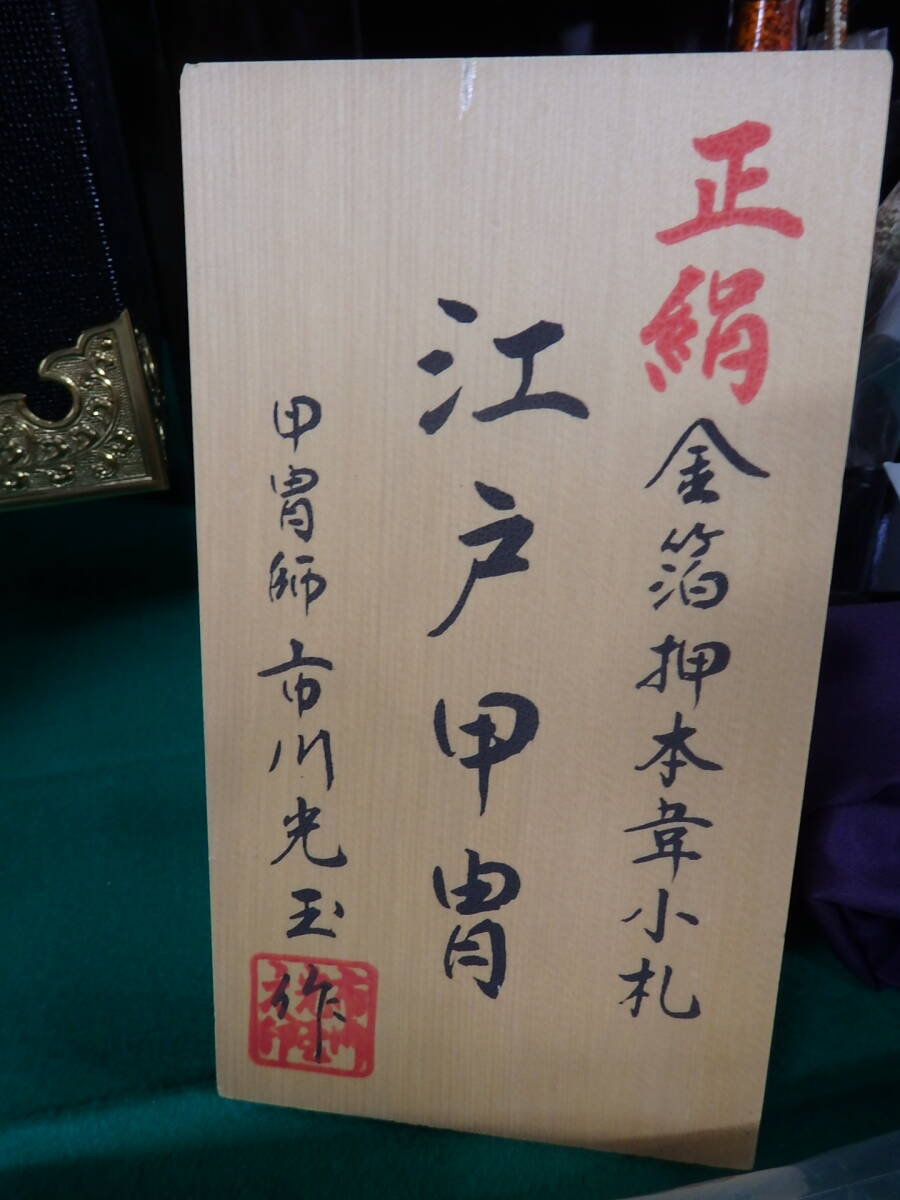 正絹金箔押本韋小札
江戸甲冑
甲冑師市川光玉作